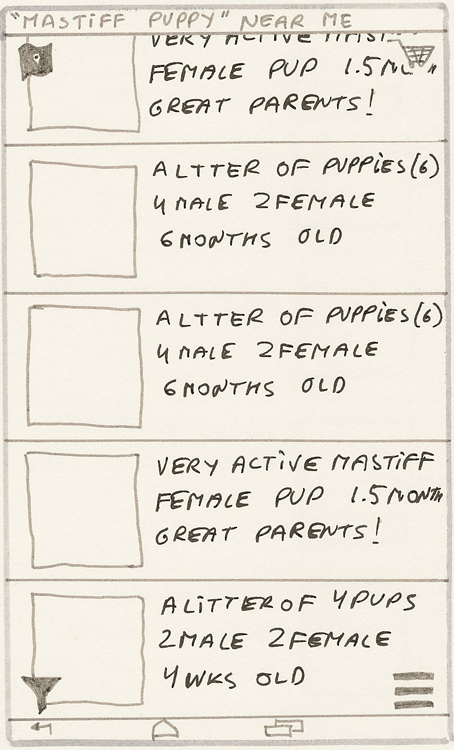 "MASTIFF PUPPY" NEAR ME
VERY ACTIVE
FEMALE PUP 1.5
GREAT PARENTS!
A LTTER OF PUPPIES(6)
4 MALE 2FEMALE
6MONTHS OLD
A LTTER OF PUPPIES(6)
4 MALE 2FEMALE
6MONTHS OLD
VERY ACTIVE MASTIFF
FEMALE PUP 1.5MONTH
GREAT PARENTS!
A LITTER OF 4PUPS
2MALE 2FEMALE
4WKS OLD